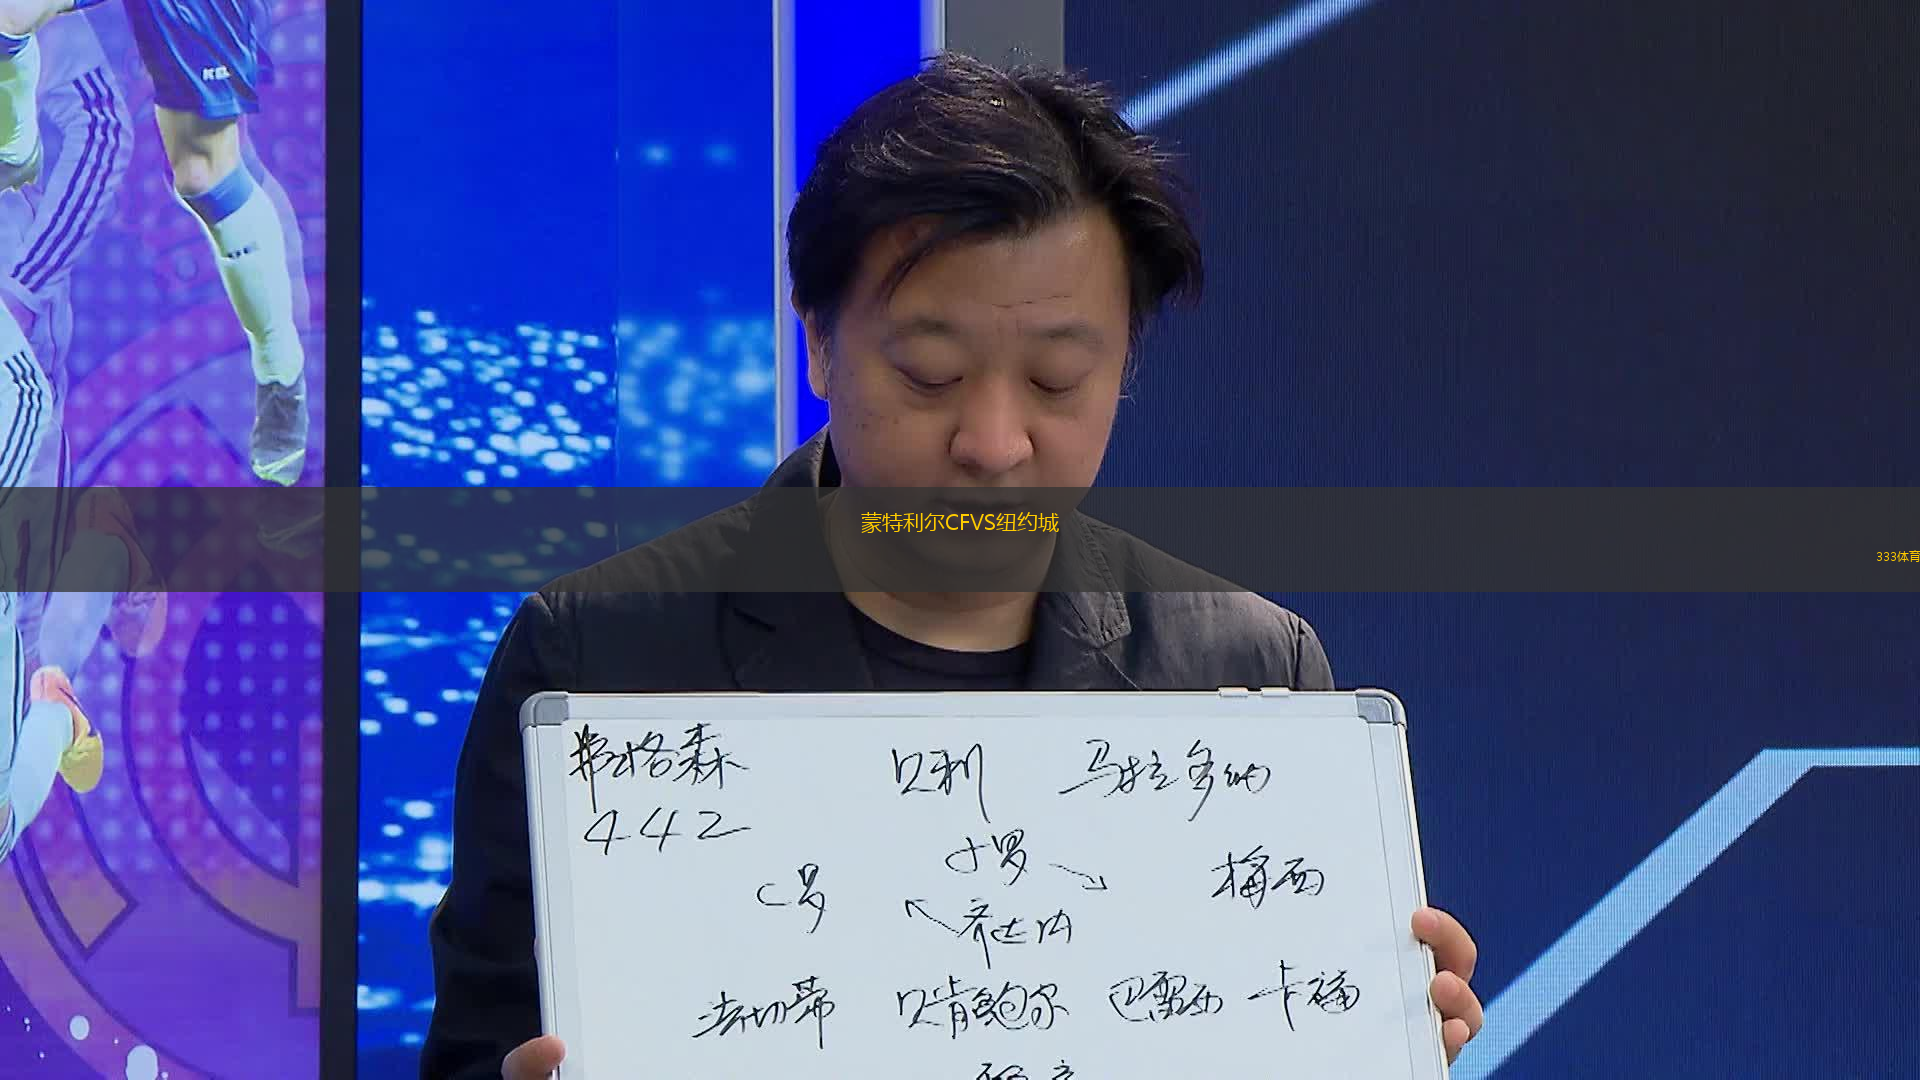 KEL
蒙特利尔CFVS纽约城
333体育
弗格森 贝利 马拉多纳
442
小罗
C罗 梅西
齐达内
法切蒂 贝肯鲍尔 巴雷西 卡福